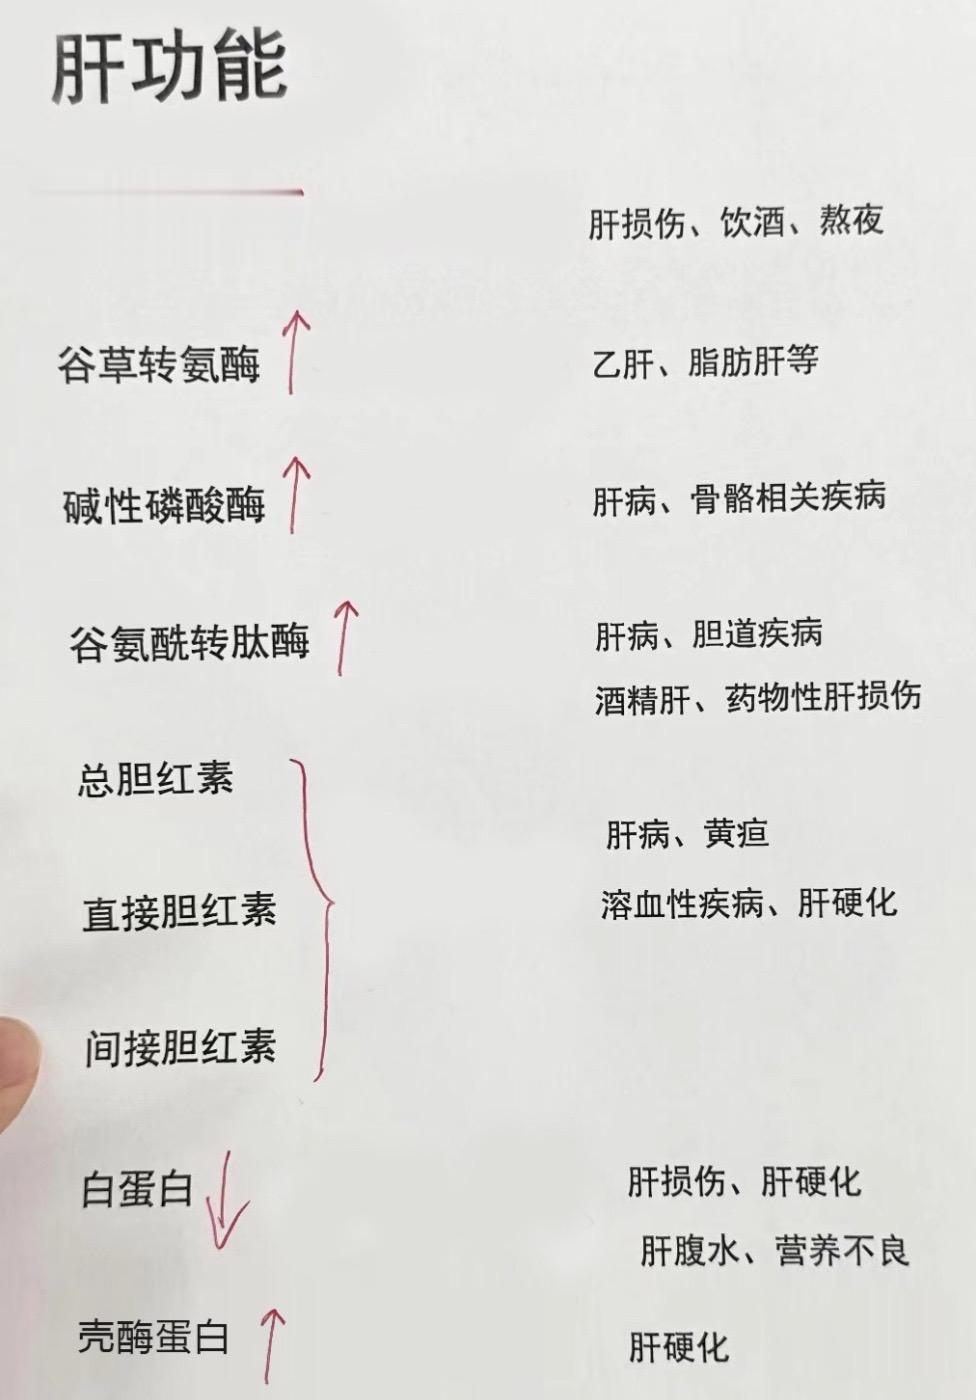 肝功能
肝损伤、饮酒、熬夜
谷草转氨酶 ↑
乙肝、脂肪肝等
碱性磷酸酶 ↑
肝病、骨骼相关疾病
谷氨酰转肽酶 ↑
肝病、胆道疾病
酒精肝、药物性肝损伤
总胆红素
肝病、黄疸
直接胆红素
溶血性疾病、肝硬化
间接胆红素
白蛋白 ↓
肝损伤、肝硬化
肝腹水、营养不良
壳酶蛋白 ↑
肝硬化